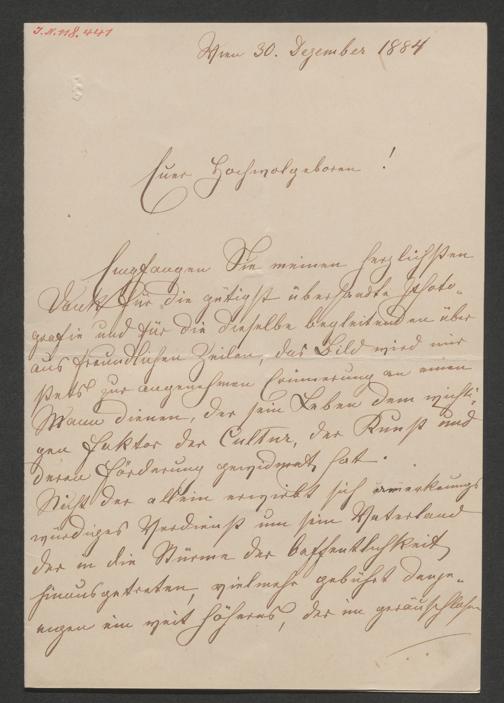 I.N. 118.441
Wien 30. Dezember 1884
Euer Hochwolgeboren!
Empfangen Sie meinen herzlichsten
Dank für die gütigst übersandte Photo-
grafie und für die dieselbe begleitenden über
aus freundlichen Zeilen, das Bild wird mir
stets zur angenehmen Erinnerung an einen
Mann dienen, der sein Leben dem wichti-
gen Faktor der Cultur, der Kunst und
deren Förderung gewidmet hat.
Nicht der allein erwirbt sich
würdiges Verdienst um sein Vaterland
der in die Stürme der Oeffentlichkeit
hinausgetreten, vielmehr gebührt Demje-
nigen ein weit höheres, der im geräuschlosen